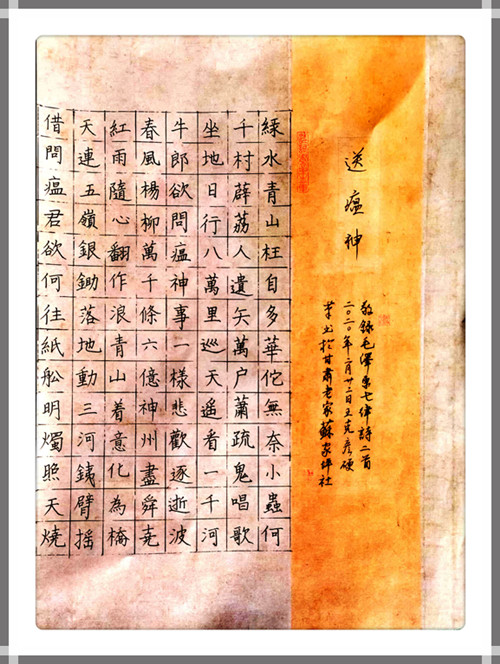 送瘟神
敬錄毛澤東七律詩二首
二〇二〇年二月廿二日王克彥硬
筆書於甘肅老家蘇家坪社
綠水青山枉自多華佗無奈小蟲何
千村薜荔人遺矢萬户蕭疏鬼唱歌
坐地日行八萬里巡天遙看一千河
牛郎欲問瘟神事一樣悲歡逐逝波
春風楊柳萬千條六億神州盡舜堯
紅雨隨心翻作浪青山着意化為橋
天連五嶺銀鋤落地動三河銕臂搖
借問瘟君欲何往紙舩明燭照天燒